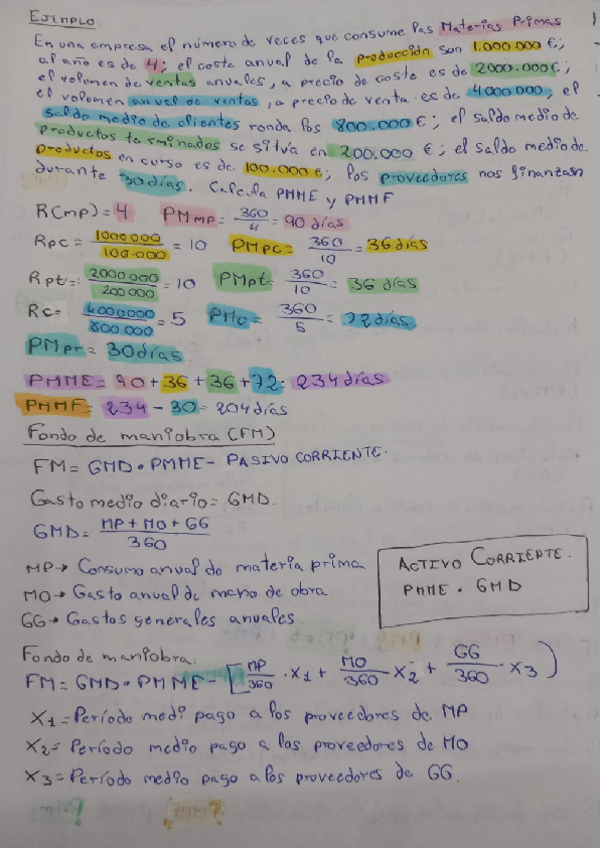 EJEMPLO
En una empresa el número de veces que consume las Materias Primas
al año es de 4; el coste anual de la producción son 1.000.000 €;
el volumen de ventas anuales, a precio de coste es de 2000.000€;
el volumen anual de ventas, a precio de venta es de 4000000; el
saldo medio de clientes ronda los 800.000€; el saldo medio de
productos terminados se sitúa en 200.000 €; el saldo medio de
productos en curso es de 100.000€; los proveedores nos financian
durante 30 días. Calcula PMME y PMMF
R(mp) = 4 PMmp = 360/4 = 90 días
Rpc = 1000000/100.000 = 10 PMpc = 360/10 = 36 días
Rpt = 2000.000/200000 = 10 PMpt = 360/10 = 36 días
Rc = 4000000/800.000 = 5 PMc = 360/5 = 72 días
PMpr = 30 días.
PMME = 90 + 36 + 36 + 72 = 234 días
PMMF = 234 - 30 = 204 días
Fondo de maniobra (FM)
FM = GMD · PMME - PASIVO CORRIENTE.
Gasto medio diario = GMD.
GMD = MP + MO + GG/360
MP → Consumo anual de materia prima
MO → Gasto anual de mano de obra
GG → Gastos generales anuales.
ACTIVO CORRIENTE.
PMME · GMD
Fondo de maniobra:
FM = GMD · PMME - [MP/360 · X1 + MO/360 · X2 + GG/360 · X3)
X1 = Período medi pago a los proveedores de MP
X2 = Período medio pago a los proveedores de MO
X3 = Período medio pago a los proveedores de GG.